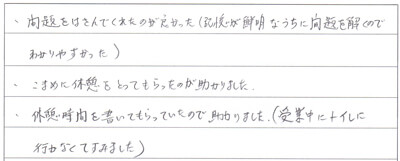 ・問題をはさんでくれたのが良かった（記憶が鮮明なうちに問題を解くので
わかりやすかった）
・こまめに休憩をとってもらったのが助かりました。
・休憩時間を書いてもらっていたので助かりました。（受業中にトイレに
行かなくてすみました）